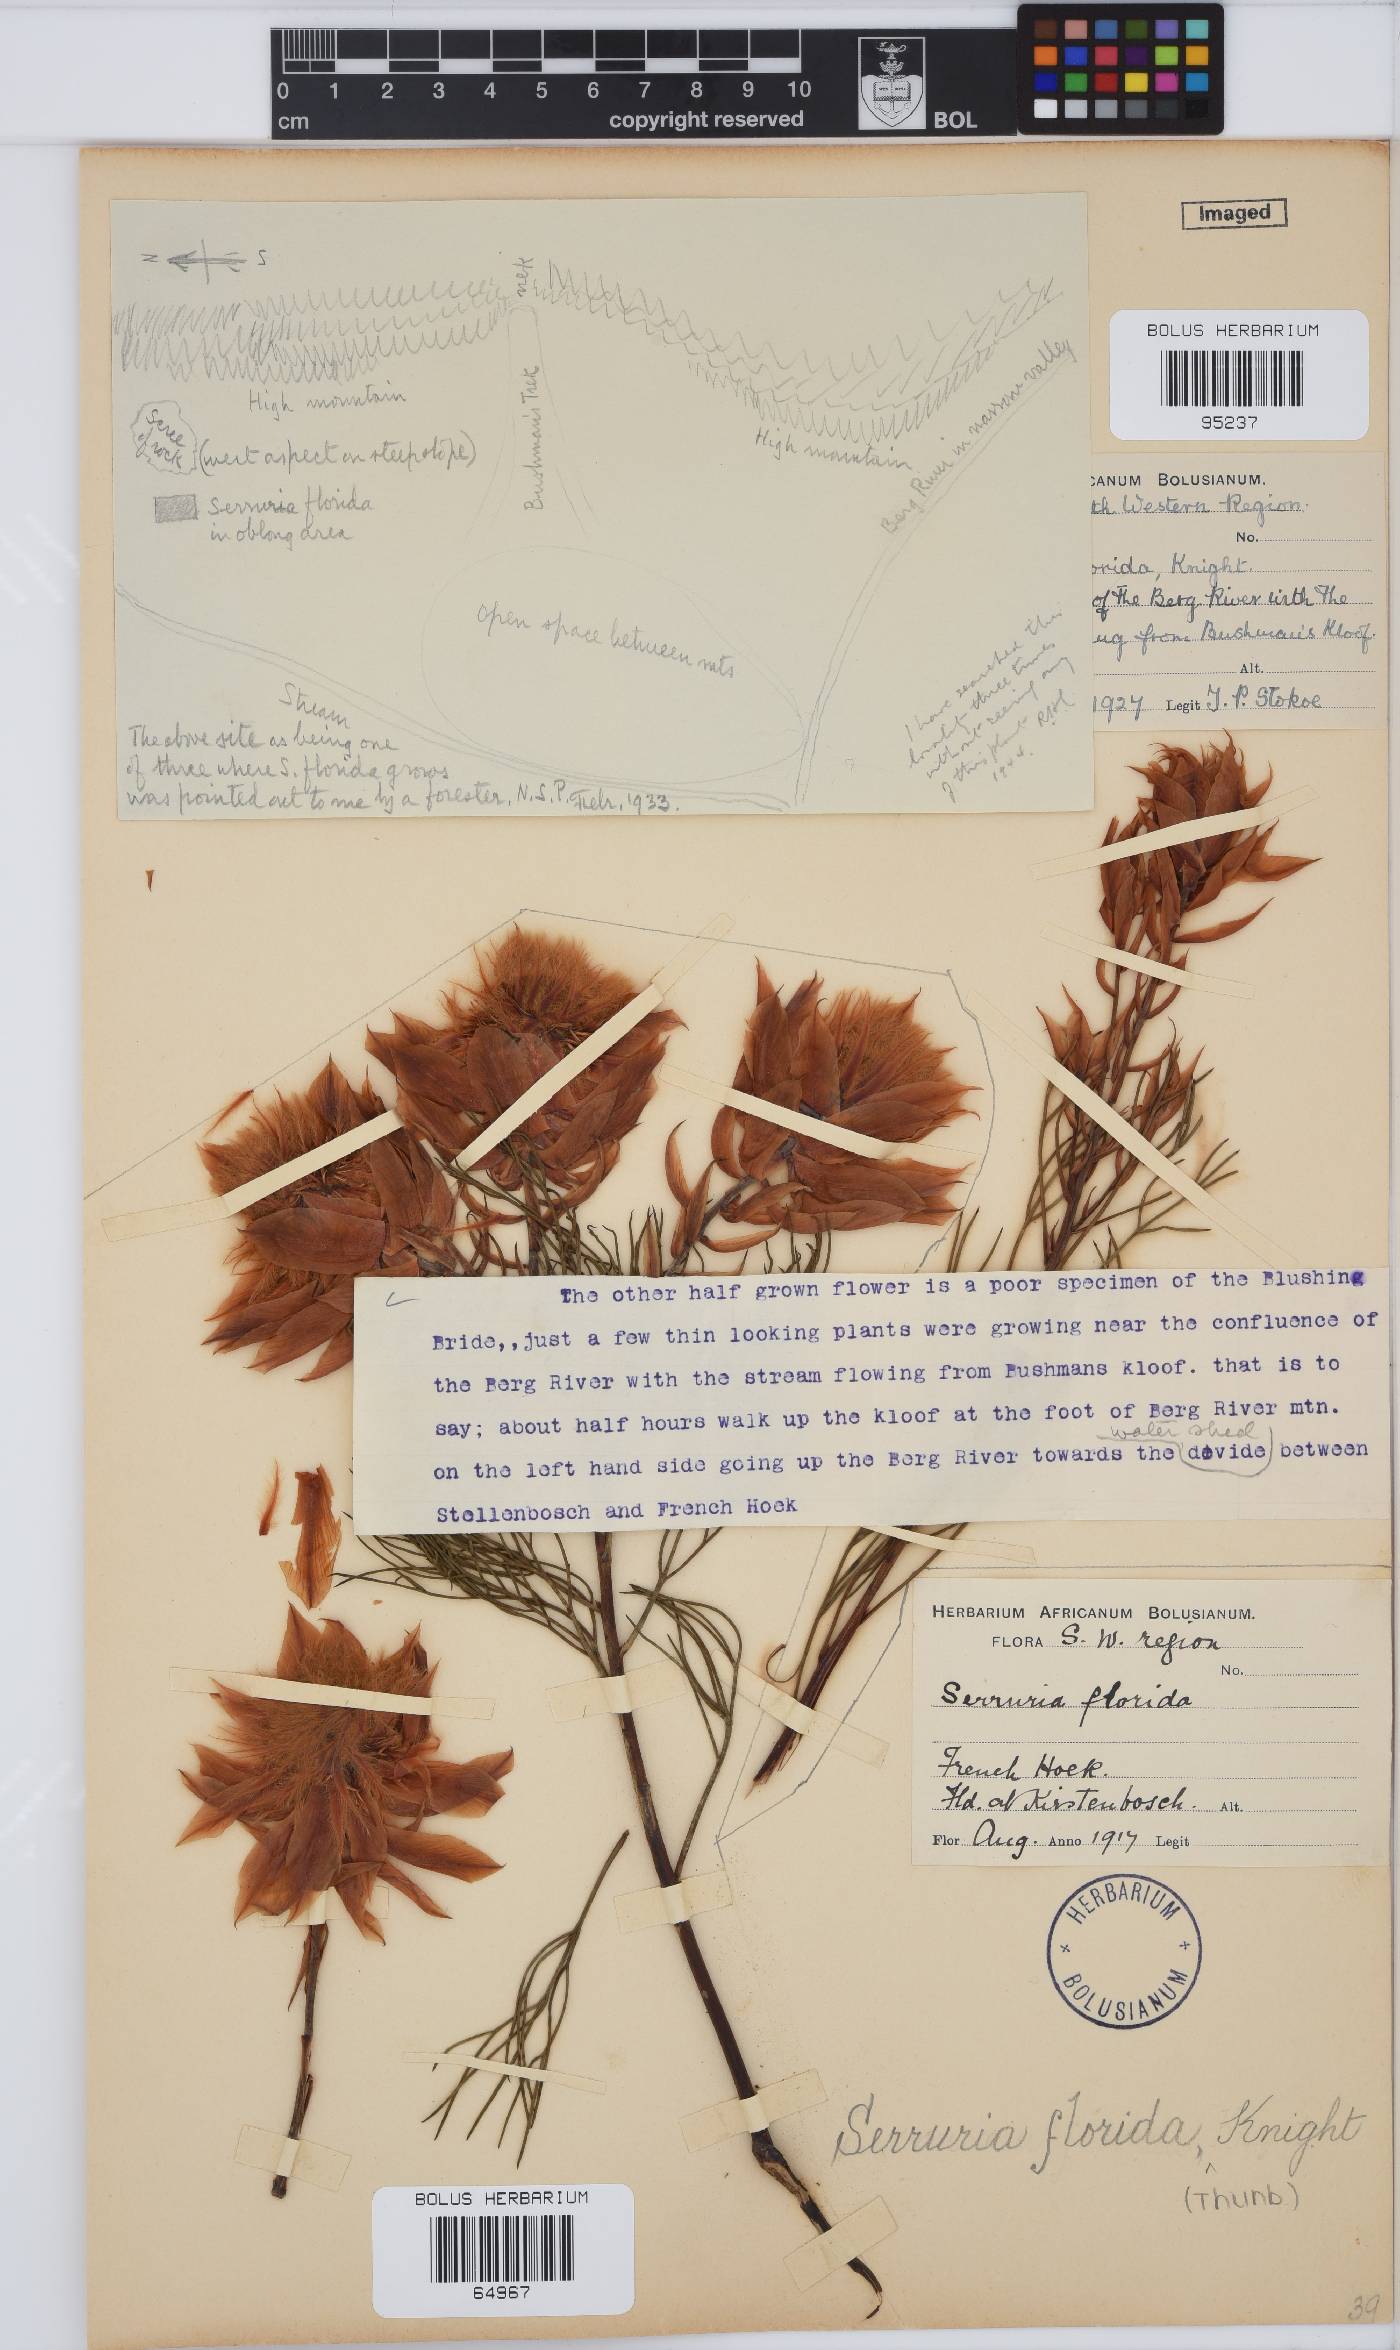 0 1 2 3 4 5 6 7 8 9 10
cm
copyright reserved
BOL
Imaged
BOLUS HERBARIUM
95237
N S
nek
High mountain
Scree
of rock
(west aspect on steep slope)
Serruria florida
in oblong area
Bushman's Trek
High mountain
Berg River in narrow valley
Open space between mts
Stream
The above site as being one
of three where S. florida grows
was pointed out to me by a forester. N.S.P. Febr. 1933.
I have searched this
locality three times
without seeing any
of this plant
CANUM BOLUSIANUM.
th Western Region.
No.
orida, Knight.
of The Berg River with The
ug from Bushman's Kloof.
Alt.
1927 Legit T. P. Stokoe
The other half grown flower is a poor specimen of the Blushing
Bride,,just a few thin looking plants were growing near the confluence of
the Berg River with the stream flowing from Bushmans kloof. that is to
say; about half hours walk up the kloof at the foot of Berg River mtn.
water shed
on the left hand side going up the Berg River towards the (divide) between
Stellenbosch and French Hoek
HERBARIUM AFRICANUM BOLUSIANUM.
FLORA S. W. region
No.
Serruria florida
French Hoek.
Hd. at Kirstenbosch. Alt.
Flor Aug. Anno 1917 Legit
HERBARIUM
BOLUSIANUM
Serruria florida, Knight
^
(Thunb)
BOLUS HERBARIUM
64967
39